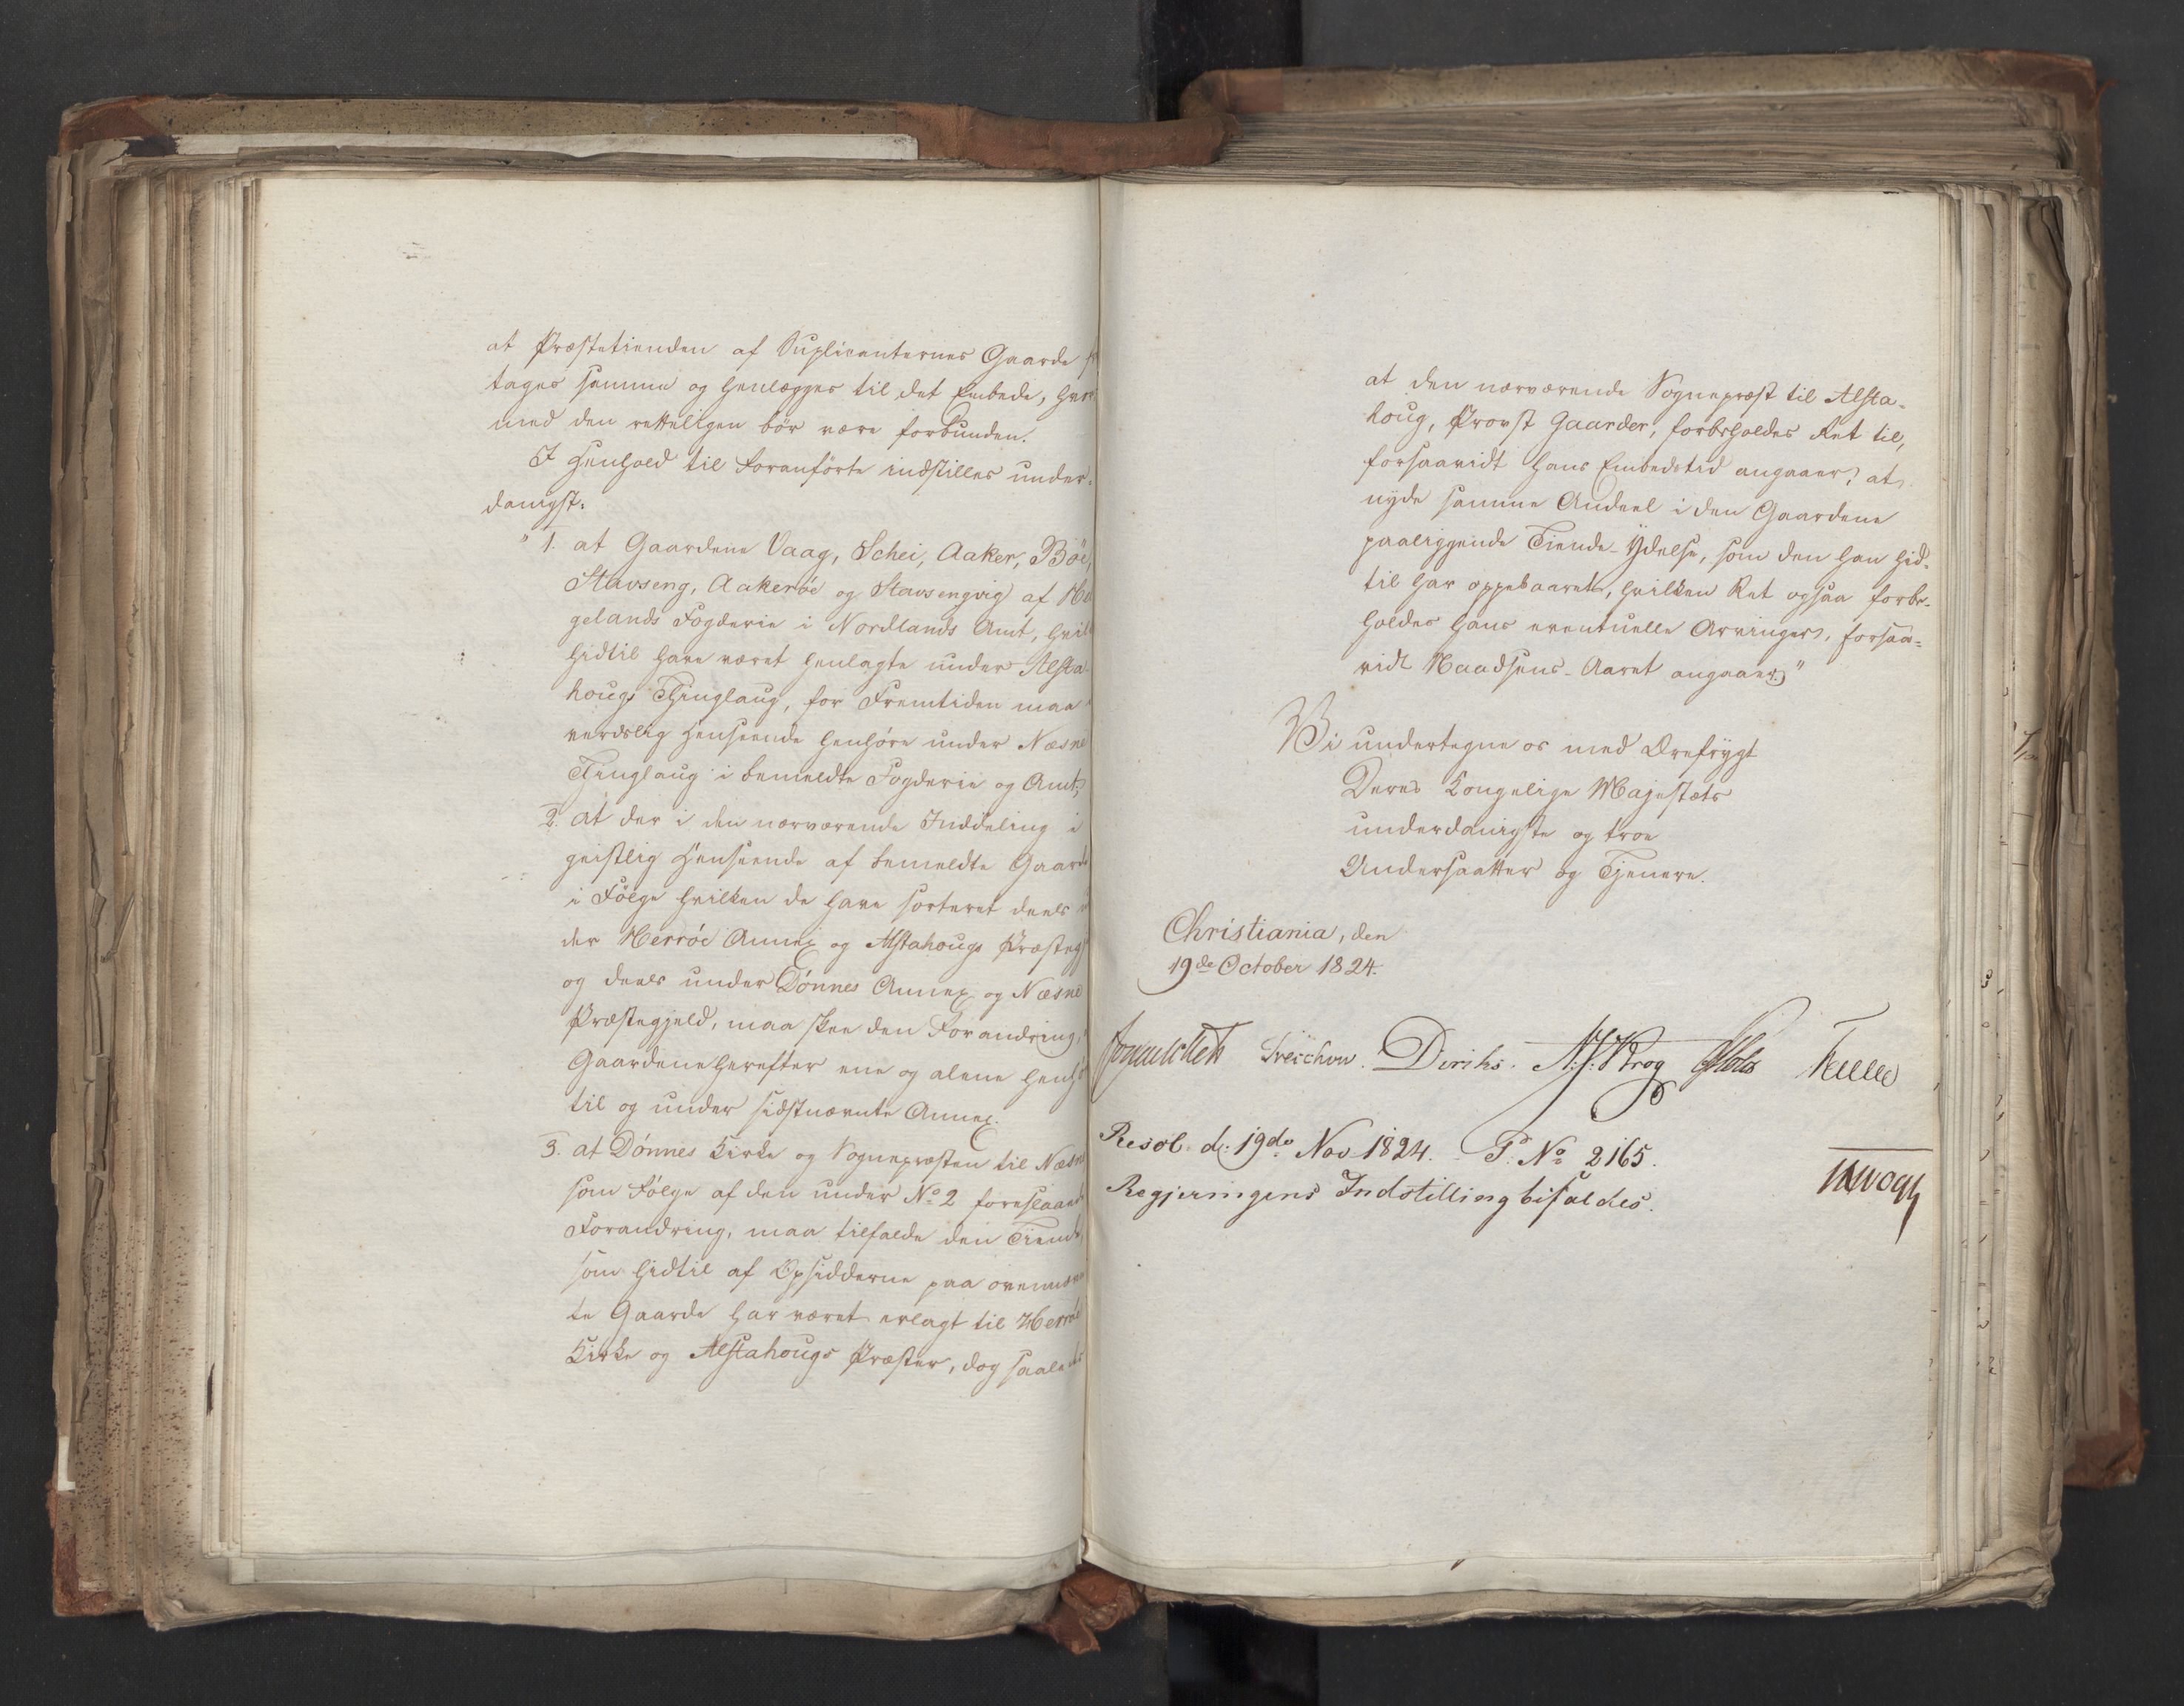 at Præstetienden af Suplicanternes Gaarde
tages samme og henlægges til det Embede, hvor
med den retteligen bör være forbunden.
I Henhold til Foranförte indstilles under-
danigst:
" 1. at Gaardene Vaag, Schei, Aaker, Böe,
Stavseng, Aakeröe og Stavsengvig af He
gelands Fogderie i Nordlands Amt, hvil
hidtil have været henlagte under Alsta-
hougs Thinglaug, for Fremtiden maa
verdslig Henseende henhöre under Næsne
Thinglaug i bemeldte Fogderie og Amt;
2. at der i den nærværende Inddeling i
geistlig Henseende af bemeldte Gaarde
i Fölge hvilken de have sorteret deels
der Herröe Annex og Alstahougs Præsteg
og deels under Dönnes Annex og Næsne
Præstegjeld, maa skee den Forandring,
Gaardene herefter ene og alene henhö
til og under sidstnævnte Annex.
3. at Dönnes Kirke og Sognepræsten til Næsne
som Fölge af den under No 2 foreslaaede
Forandring, maa tilfalde den Tiende,
som hidtil af Opsidderne paa ovennævn
te Gaarde har været erlagt til Herröe
Kirke og Alstahougs Præster, dog saaledes
at den nærværende Sognepræst til Alsta-
houg, Provst Gaarder, forbeholdes Ret til,
forsaavidt hans Embedstid angaaer, at
nyde samme Andeel i den Gaardene
paaliggende Tiende-Ydelse, som den han hid-
til har oppebaaret, hvilken Ret ogsaa forbe-
holdes hans eventuelle Arvinger, forsaa-
vidt Naadsens-Aaret angaaer."
Vi undertegne os med Ærefrygt
Deres Kongelige Majestæts
underdanigste og troe
Undersaatter og Tjenere.
Christiania, den
19de October 1824.
Sommerhielm Treschow. Diriks. N. J. Krog JHolst Fasting
Resol. d. 19de Nov 1824. P. No 2165.
Regjeringens Indstilling bifaldes.